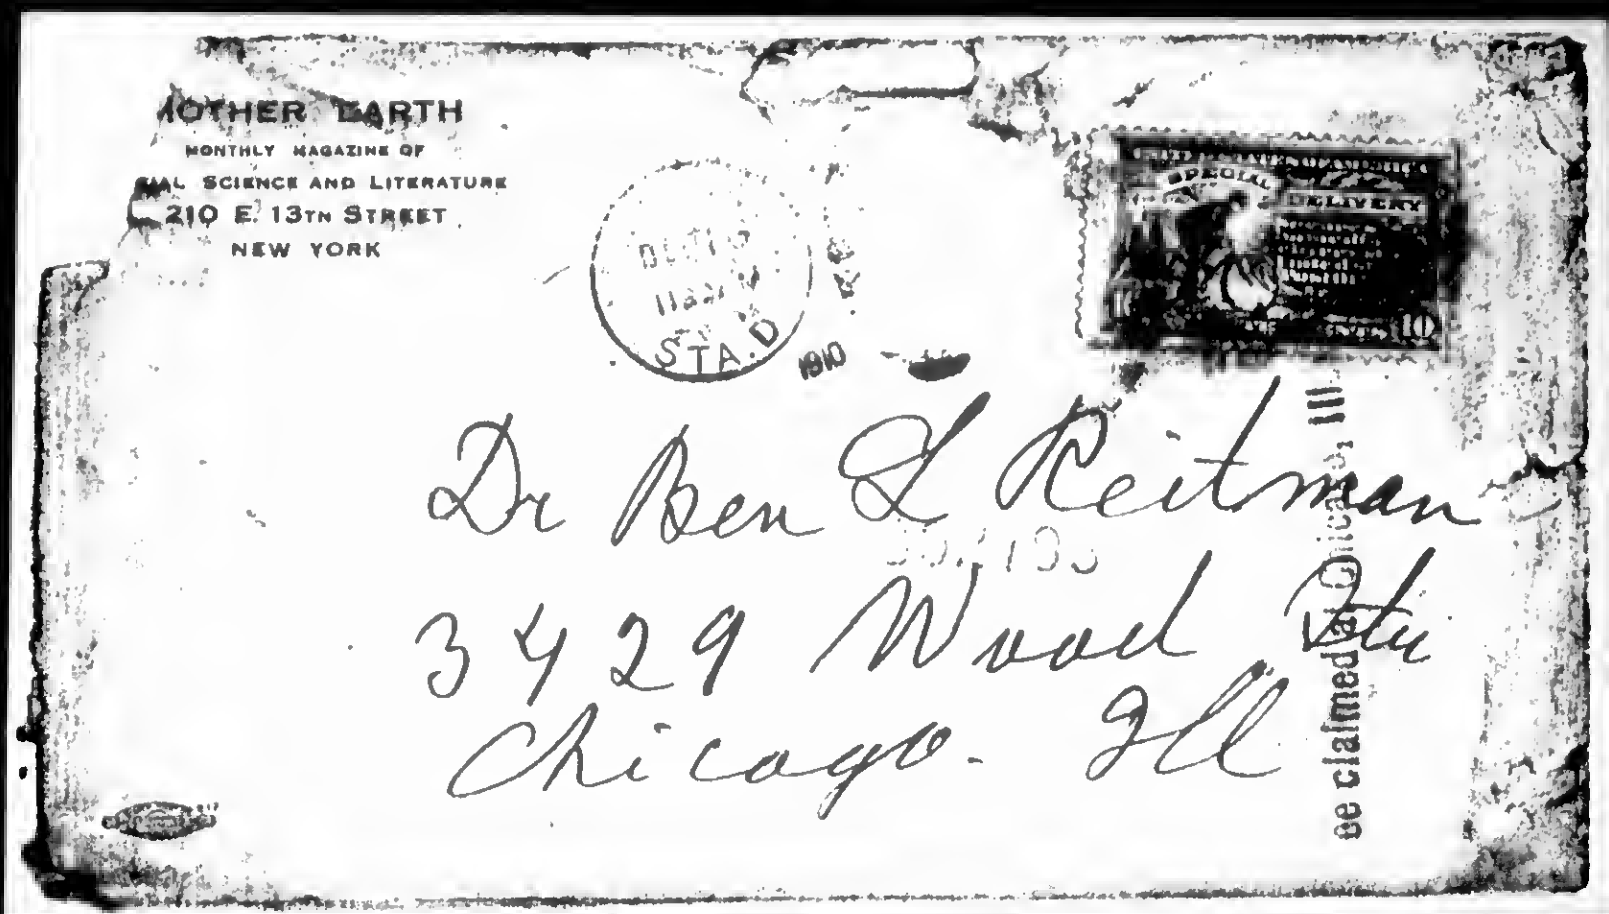 MOTHER EARTH
MONTHLY MAGAZINE OF
SOCIAL SCIENCE AND LITERATURE
210 E. 13TH STREET
NEW YORK
STA. D
1910
SPECIAL
DELIVERY
10
Dr Ben L Reitman
3429 Wood Str
Chicago. Ill
be claimed at Chicago, Ill.